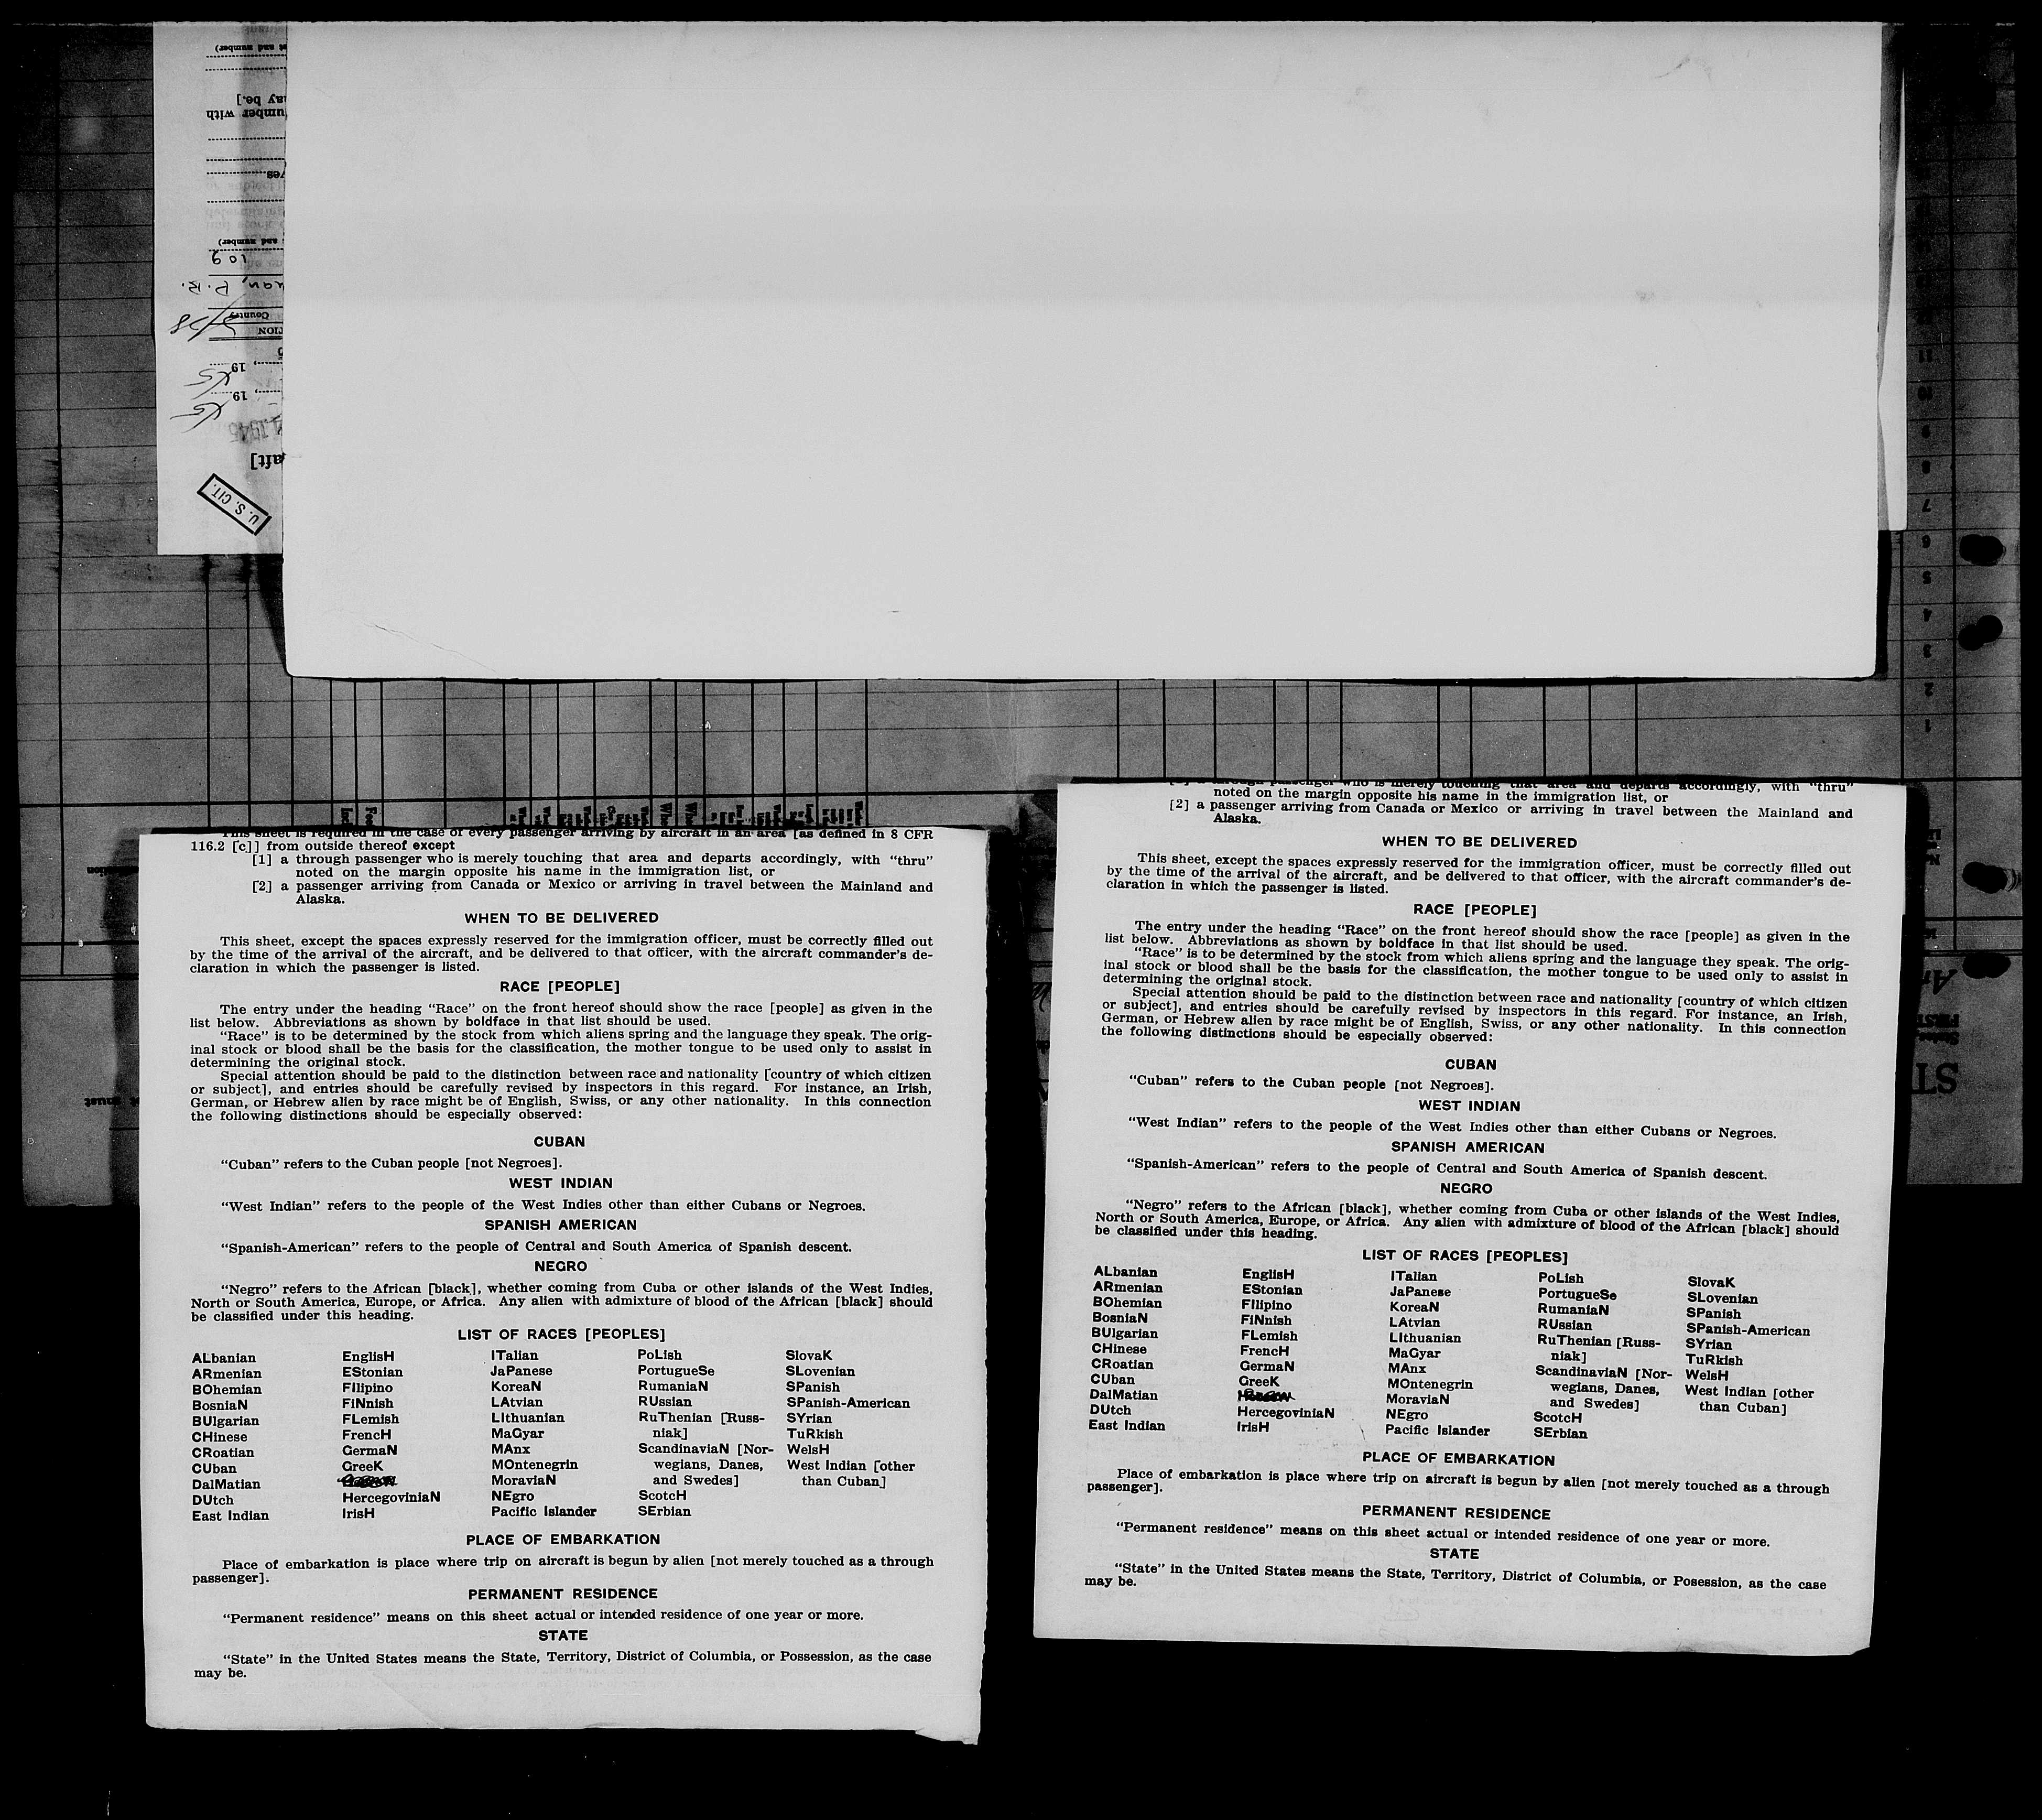 U. S. CIT.
11
10
9
8
7
6
5
4
3
2
1
This sheet is required in the case of every passenger arriving by aircraft in an area [as defined in 8 CFR
116.2 [c]] from outside thereof except
[1] a through passenger who is merely touching that area and departs accordingly, with “thru”
noted on the margin opposite his name in the immigration list, or
[2] a passenger arriving from Canada or Mexico or arriving in travel between the Mainland and
Alaska.
WHEN TO BE DELIVERED
This sheet, except the spaces expressly reserved for the immigration officer, must be correctly filled out
by the time of the arrival of the aircraft, and be delivered to that officer, with the aircraft commander’s de-
claration in which the passenger is listed.
RACE [PEOPLE]
The entry under the heading “Race” on the front hereof should show the race [people] as given in the
list below. Abbreviations as shown by boldface in that list should be used.
“Race” is to be determined by the stock from which aliens spring and the language they speak. The orig-
inal stock or blood shall be the basis for the classification, the mother tongue to be used only to assist in
determining the original stock.
Special attention should be paid to the distinction between race and nationality [country of which citizen
or subject], and entries should be carefully revised by inspectors in this regard. For instance, an Irish,
German, or Hebrew alien by race might be of English, Swiss, or any other nationality. In this connection
the following distinctions should be especially observed:
CUBAN
“Cuban” refers to the Cuban people [not Negroes].
WEST INDIAN
“West Indian” refers to the people of the West Indies other than either Cubans or Negroes.
SPANISH AMERICAN
“Spanish-American” refers to the people of Central and South America of Spanish descent.
NEGRO
“Negro” refers to the African [black], whether coming from Cuba or other islands of the West Indies,
North or South America, Europe, or Africa. Any alien with admixture of blood of the African [black] should
be classified under this heading.
LIST OF RACES [PEOPLES]
ALbanian
ARmenian
BOhemian
BosniaN
BUlgarian
CHinese
CRoatian
CUban
DalMatian
DUtch
East Indian
EnglisH
EStonian
FIlipino
FiNnish
FLemish
FrencH
GermaN
GreeK
HercegoviniaN
IrisH
ITalian
JaPanese
KoreaN
LAtvian
LIthuanian
MaGyar
MAnx
MOntenegrin
MoraviaN
NEgro
Pacific Islander
PoLish
PortugueSe
RumaniaN
RUssian
RuThenian [Russ-
niak]
ScandinaviaN [Nor-
wegians, Danes,
and Swedes]
ScotcH
SErbian
SlovaK
SLovenian
SPanish
SPanish-American
SYrian
TuRkish
WelsH
West Indian [other
than Cuban]
PLACE OF EMBARKATION
Place of embarkation is place where trip on aircraft is begun by alien [not merely touched as a through
passenger].
PERMANENT RESIDENCE
“Permanent residence” means on this sheet actual or intended residence of one year or more.
STATE
“State” in the United States means the State, Territory, District of Columbia, or Possession, as the case
may be.
a through passenger who is merely touching that area and departs accordingly, with “thru”
noted on the margin opposite his name in the immigration list, or
[2] a passenger arriving from Canada or Mexico or arriving in travel between the Mainland and
Alaska.
WHEN TO BE DELIVERED
This sheet, except the spaces expressly reserved for the immigration officer, must be correctly filled out
by the time of the arrival of the aircraft, and be delivered to that officer, with the aircraft commander’s de-
claration in which the passenger is listed.
RACE [PEOPLE]
The entry under the heading “Race” on the front hereof should show the race [people] as given in the
list below. Abbreviations as shown by boldface in that list should be used.
“Race” is to be determined by the stock from which aliens spring and the language they speak. The orig-
inal stock or blood shall be the basis for the classification, the mother tongue to be used only to assist in
determining the original stock.
Special attention should be paid to the distinction between race and nationality [country of which citizen
or subject], and entries should be carefully revised by inspectors in this regard. For instance, an Irish,
German, or Hebrew alien by race might be of English, Swiss, or any other nationality. In this connection
the following distinctions should be especially observed:
CUBAN
“Cuban” refers to the Cuban people [not Negroes].
WEST INDIAN
“West Indian” refers to the people of the West Indies other than either Cubans or Negroes.
SPANISH AMERICAN
“Spanish-American” refers to the people of Central and South America of Spanish descent.
NEGRO
“Negro” refers to the African [black], whether coming from Cuba or other islands of the West Indies,
North or South America, Europe, or Africa. Any alien with admixture of blood of the African [black] should
be classified under this heading.
LIST OF RACES [PEOPLES]
ALbanian
ARmenian
BOhemian
BosniaN
BUlgarian
CHinese
CRoatian
CUban
DalMatian
DUtch
East Indian
EnglisH
EStonian
FIlipino
FiNnish
FLemish
FrencH
GermaN
GreeK
HercegoviniaN
IrisH
ITalian
JaPanese
KoreaN
LAtvian
LIthuanian
MaGyar
MAnx
MOntenegrin
MoraviaN
NEgro
Pacific Islander
PoLish
PortugueSe
RumaniaN
RUssian
RuThenian [Russ-
niak]
ScandinaviaN [Nor-
wegians, Danes,
and Swedes]
ScotcH
SErbian
SlovaK
SLovenian
SPanish
SPanish-American
SYrian
TuRkish
WelsH
West Indian [other
than Cuban]
PLACE OF EMBARKATION
Place of embarkation is place where trip on aircraft is begun by alien [not merely touched as a through
passenger].
PERMANENT RESIDENCE
“Permanent residence” means on this sheet actual or intended residence of one year or more.
STATE
“State” in the United States means the State, Territory, District of Columbia, or Posession, as the case
may be.